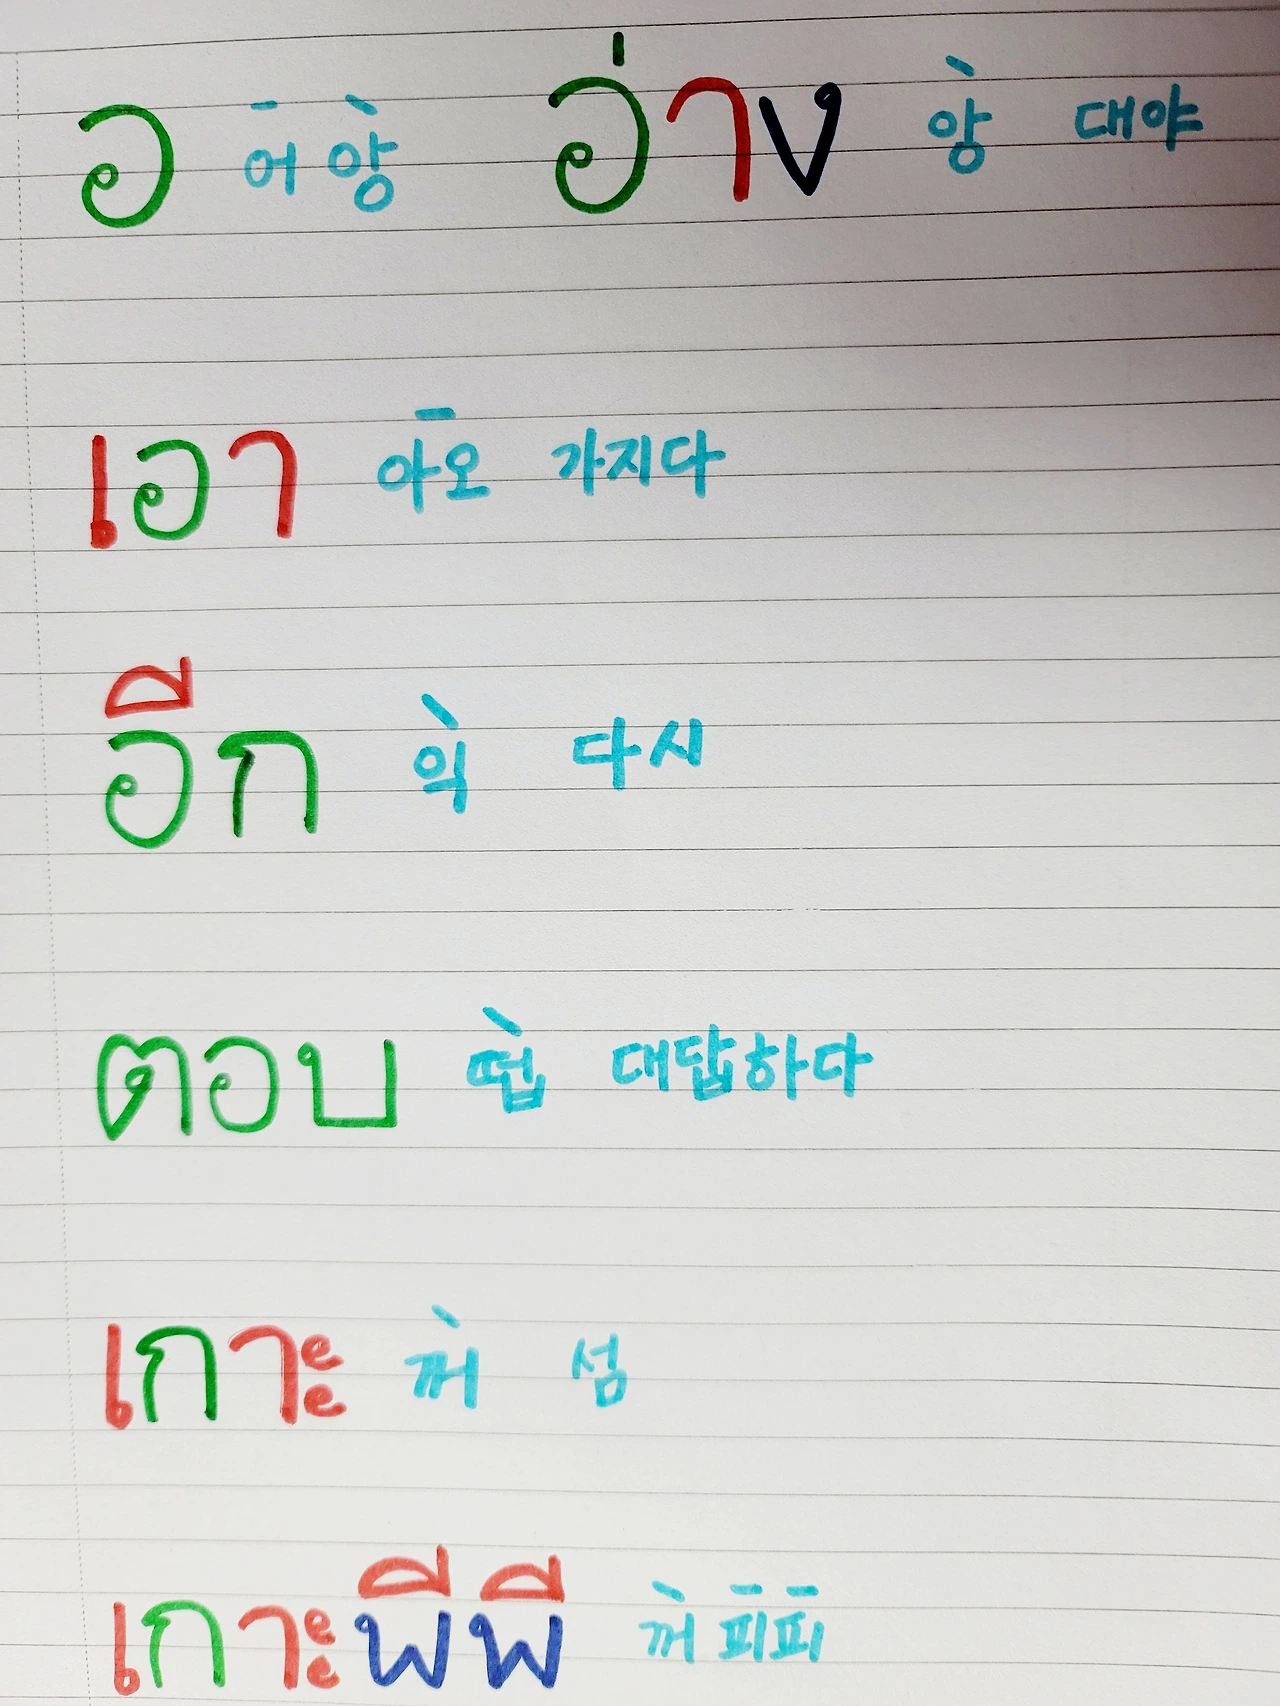 อ 어 앙 อ่าง 앙 대야
เอา 아오 가지다
อีก 익 다시
ตอบ 떱 대답하다
เกาะ 꺼 섬
เกาะพีพี 꺼 피피